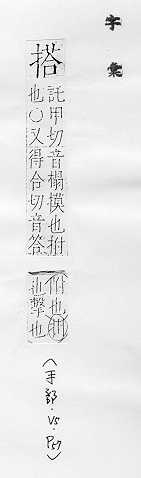 字彙
搭
託甲切音榻摸也拊
也○又得合切音答
附也掛
也擊也
(手部.V5.P57)